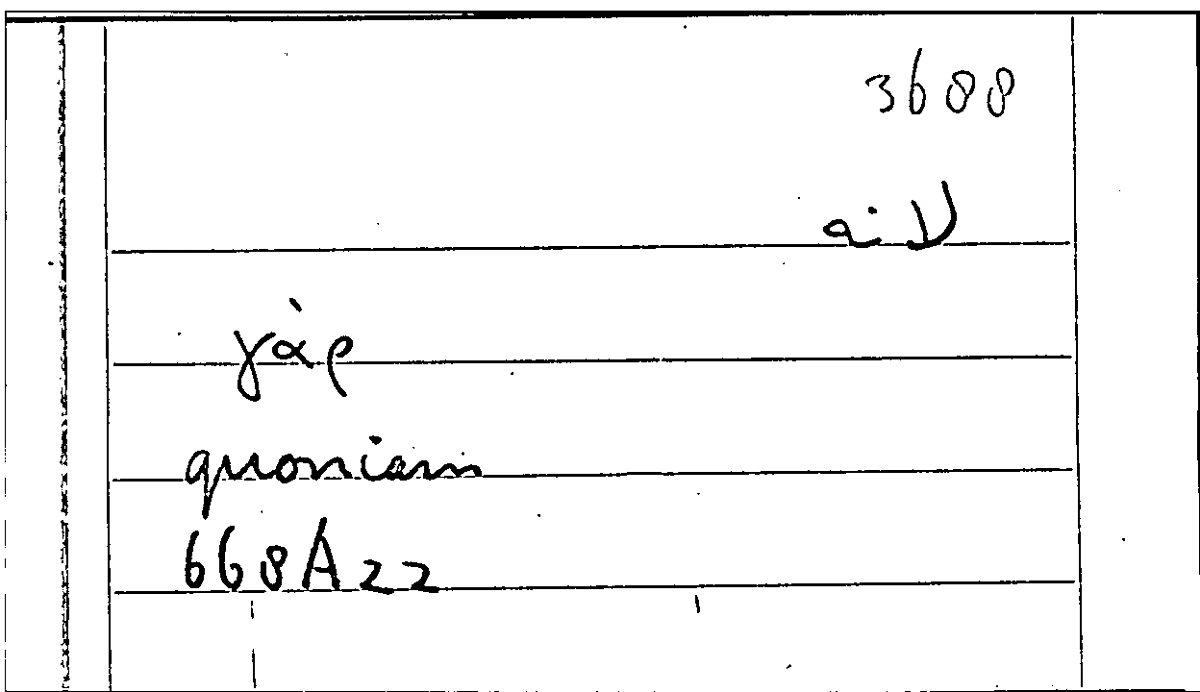 3688
a: V
γὰρ
quoniam
668A22